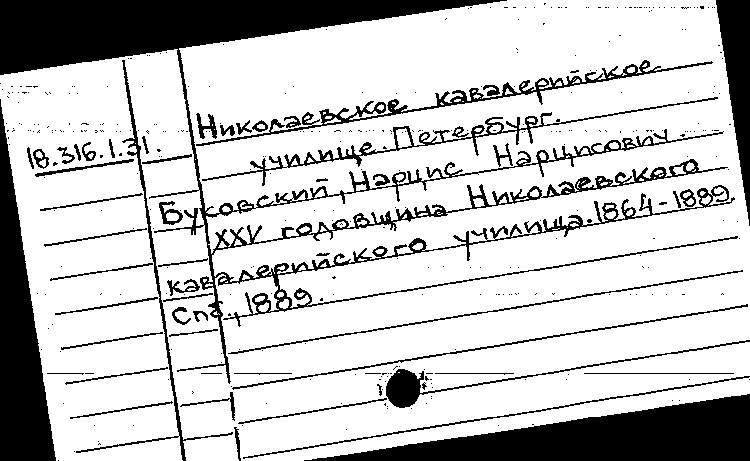 Николаевское кавалерийское
18.316.1.31.
училище. Петербург.
Буковский, Нарцис Нарцисович.
XXV годовщина Николаевского
кавалерийского училища. 1864-1889.
Спб., 1889.